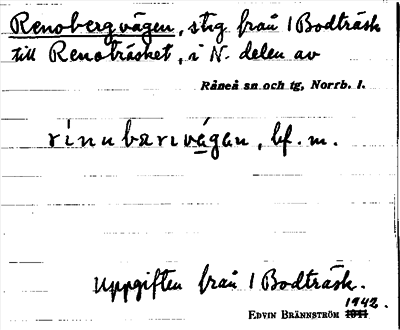 Renobergvägen, stig från 1 Bodträsk
till Renobträsket, i N. delen av
Råneå sn och tg, Norrb. l.
rínubærɩvá̱gan, bf. m.
Uppgiften från 1 Bodträsk.
1942.
EDVIN BRÄNNSTRÖM 1941